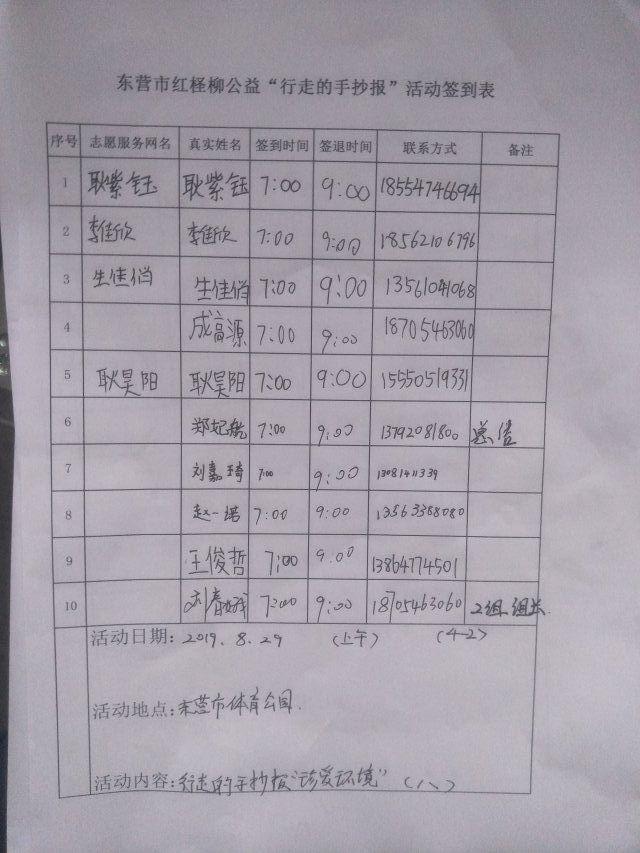 东营市红柽柳公益“行走的手抄报”活动签到表
序号 志愿服务网名 真实姓名 签到时间 签退时间 联系方式 备注
1 耿紫钰 耿紫钰 7:00 9:00 18554746694
2 李佳欣 李佳欣 7:00 9:00 18562106796
3 生佳俏 生佳俏 7:00 9:00 13561041068
4 成高源 7:00 9:00 18705463060
5 耿昊阳 耿昊阳 7:00 9:00 15550519331
6 郑妃航 7:00 9:00 13792081800
7 刘嘉琦 7:00 9:00 13081411339
8 赵一诺 7:00 9:00 13563388080
9 王俊哲 7:00 9:00 13864774501
10 刘春娥 7:00 9:00 18705463060 2组组长
活动日期: 2019.8.29 (上午) (4-2)
活动地点: 东营市体育公园.
活动内容: 行走的手抄报“珍爱环境” (八)